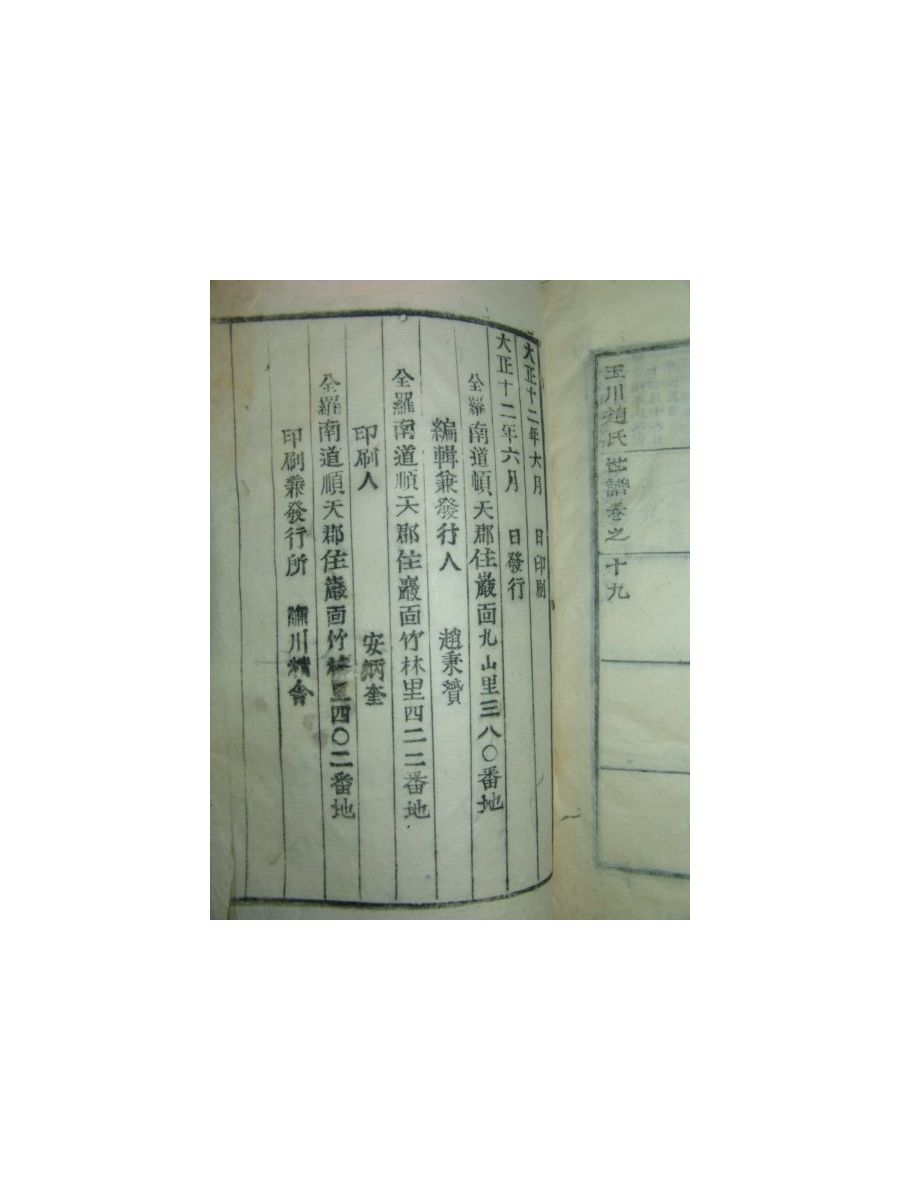 玉川趙氏世譜卷之十九
大正十二年六月　日印刷
大正十二年六月　日發行
全羅南道順天郡住巖面九山里三八〇番地
編輯兼發行人　趙秉贊
全羅南道順天郡住巖面竹林里四二二番地
印刷人　安炳奎
全羅南道順天郡住巖面竹林里四〇二番地
印刷兼發行所　川精舍